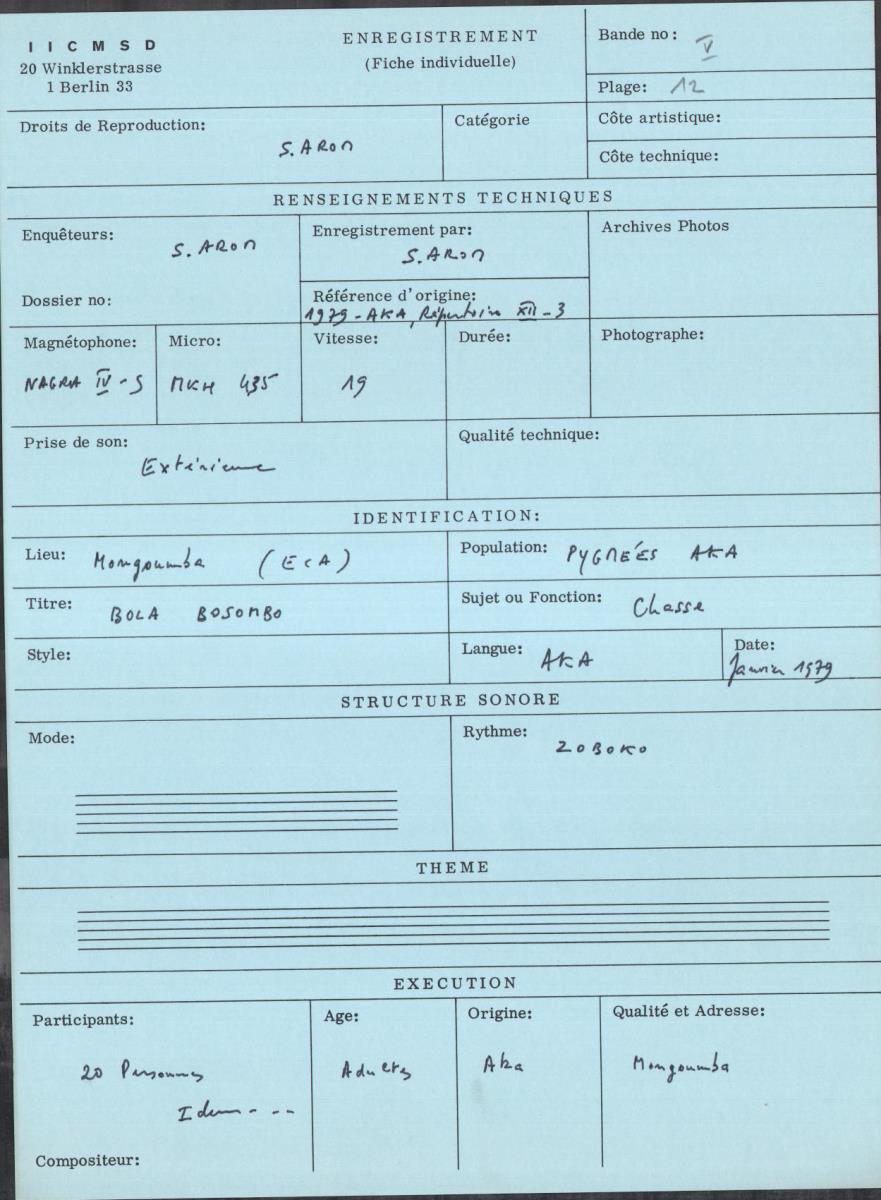 I I C M S D
20 Winklerstrasse
1 Berlin 33
ENREGISTREMENT
(Fiche individuelle)
Bande no: V
Plage: 12
Droits de Reproduction: S. ARON
Catégorie
Côte artistique:
Côte technique:
RENSEIGNEMENTS TECHNIQUES
Enquêteurs: S. ARON
Dossier no:
Enregistrement par: S. ARON
Référence d'origine:
1979 - AKA, Répertoire XII - 3
Archives Photos
Magnétophone: NAGRA IV - S
Micro: MKH 435
Vitesse: 19
Durée:
Photographe:
Prise de son: Extérieure
Qualité technique:
IDENTIFICATION:
Lieu: Mongoumba (ECA)
Population: PYGMÉES AKA
Titre: BOLA BOSOMBO
Sujet ou Fonction: Chasse
Style:
Langue: AKA
Date: Janvier 1979
STRUCTURE SONORE
Mode:
Rythme: ZOBOKO
THEME
EXECUTION
Participants:
20 Personnes
Idem - - -
Age:
Adultes
Origine:
Aka
Qualité et Adresse:
Mongoumba
Compositeur: